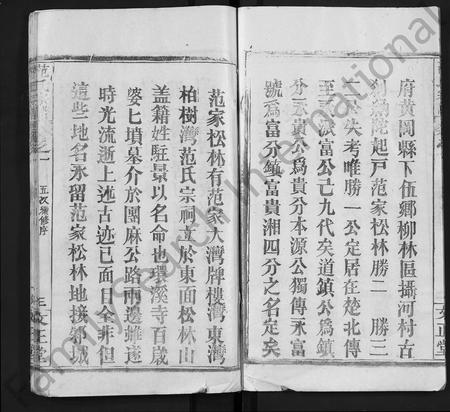 府黄岡縣下伍鄉柳林區攝河村古
起戶范家松林勝二　勝三
失考唯勝一公定居在楚北傳
至 派富公己九代矣道鎮公爲鎮
分永貴公爲貴分本源公獨傳永富
號爲富分鎮富貴湘四分之名定矣
范家松林有范家大灣牌樓灣東灣
柏樹灣范氏宗祠立於東面松林山
盖籍姓駐景以名命也環溪寺百歲
婆匕墳墓介於闗麻公路兩邉雖遂
時光流逝上述古迹已面目全非但
這些地名永留范家松林地接郭城
五次續修序
文正堂
文正堂
FamilySearch International